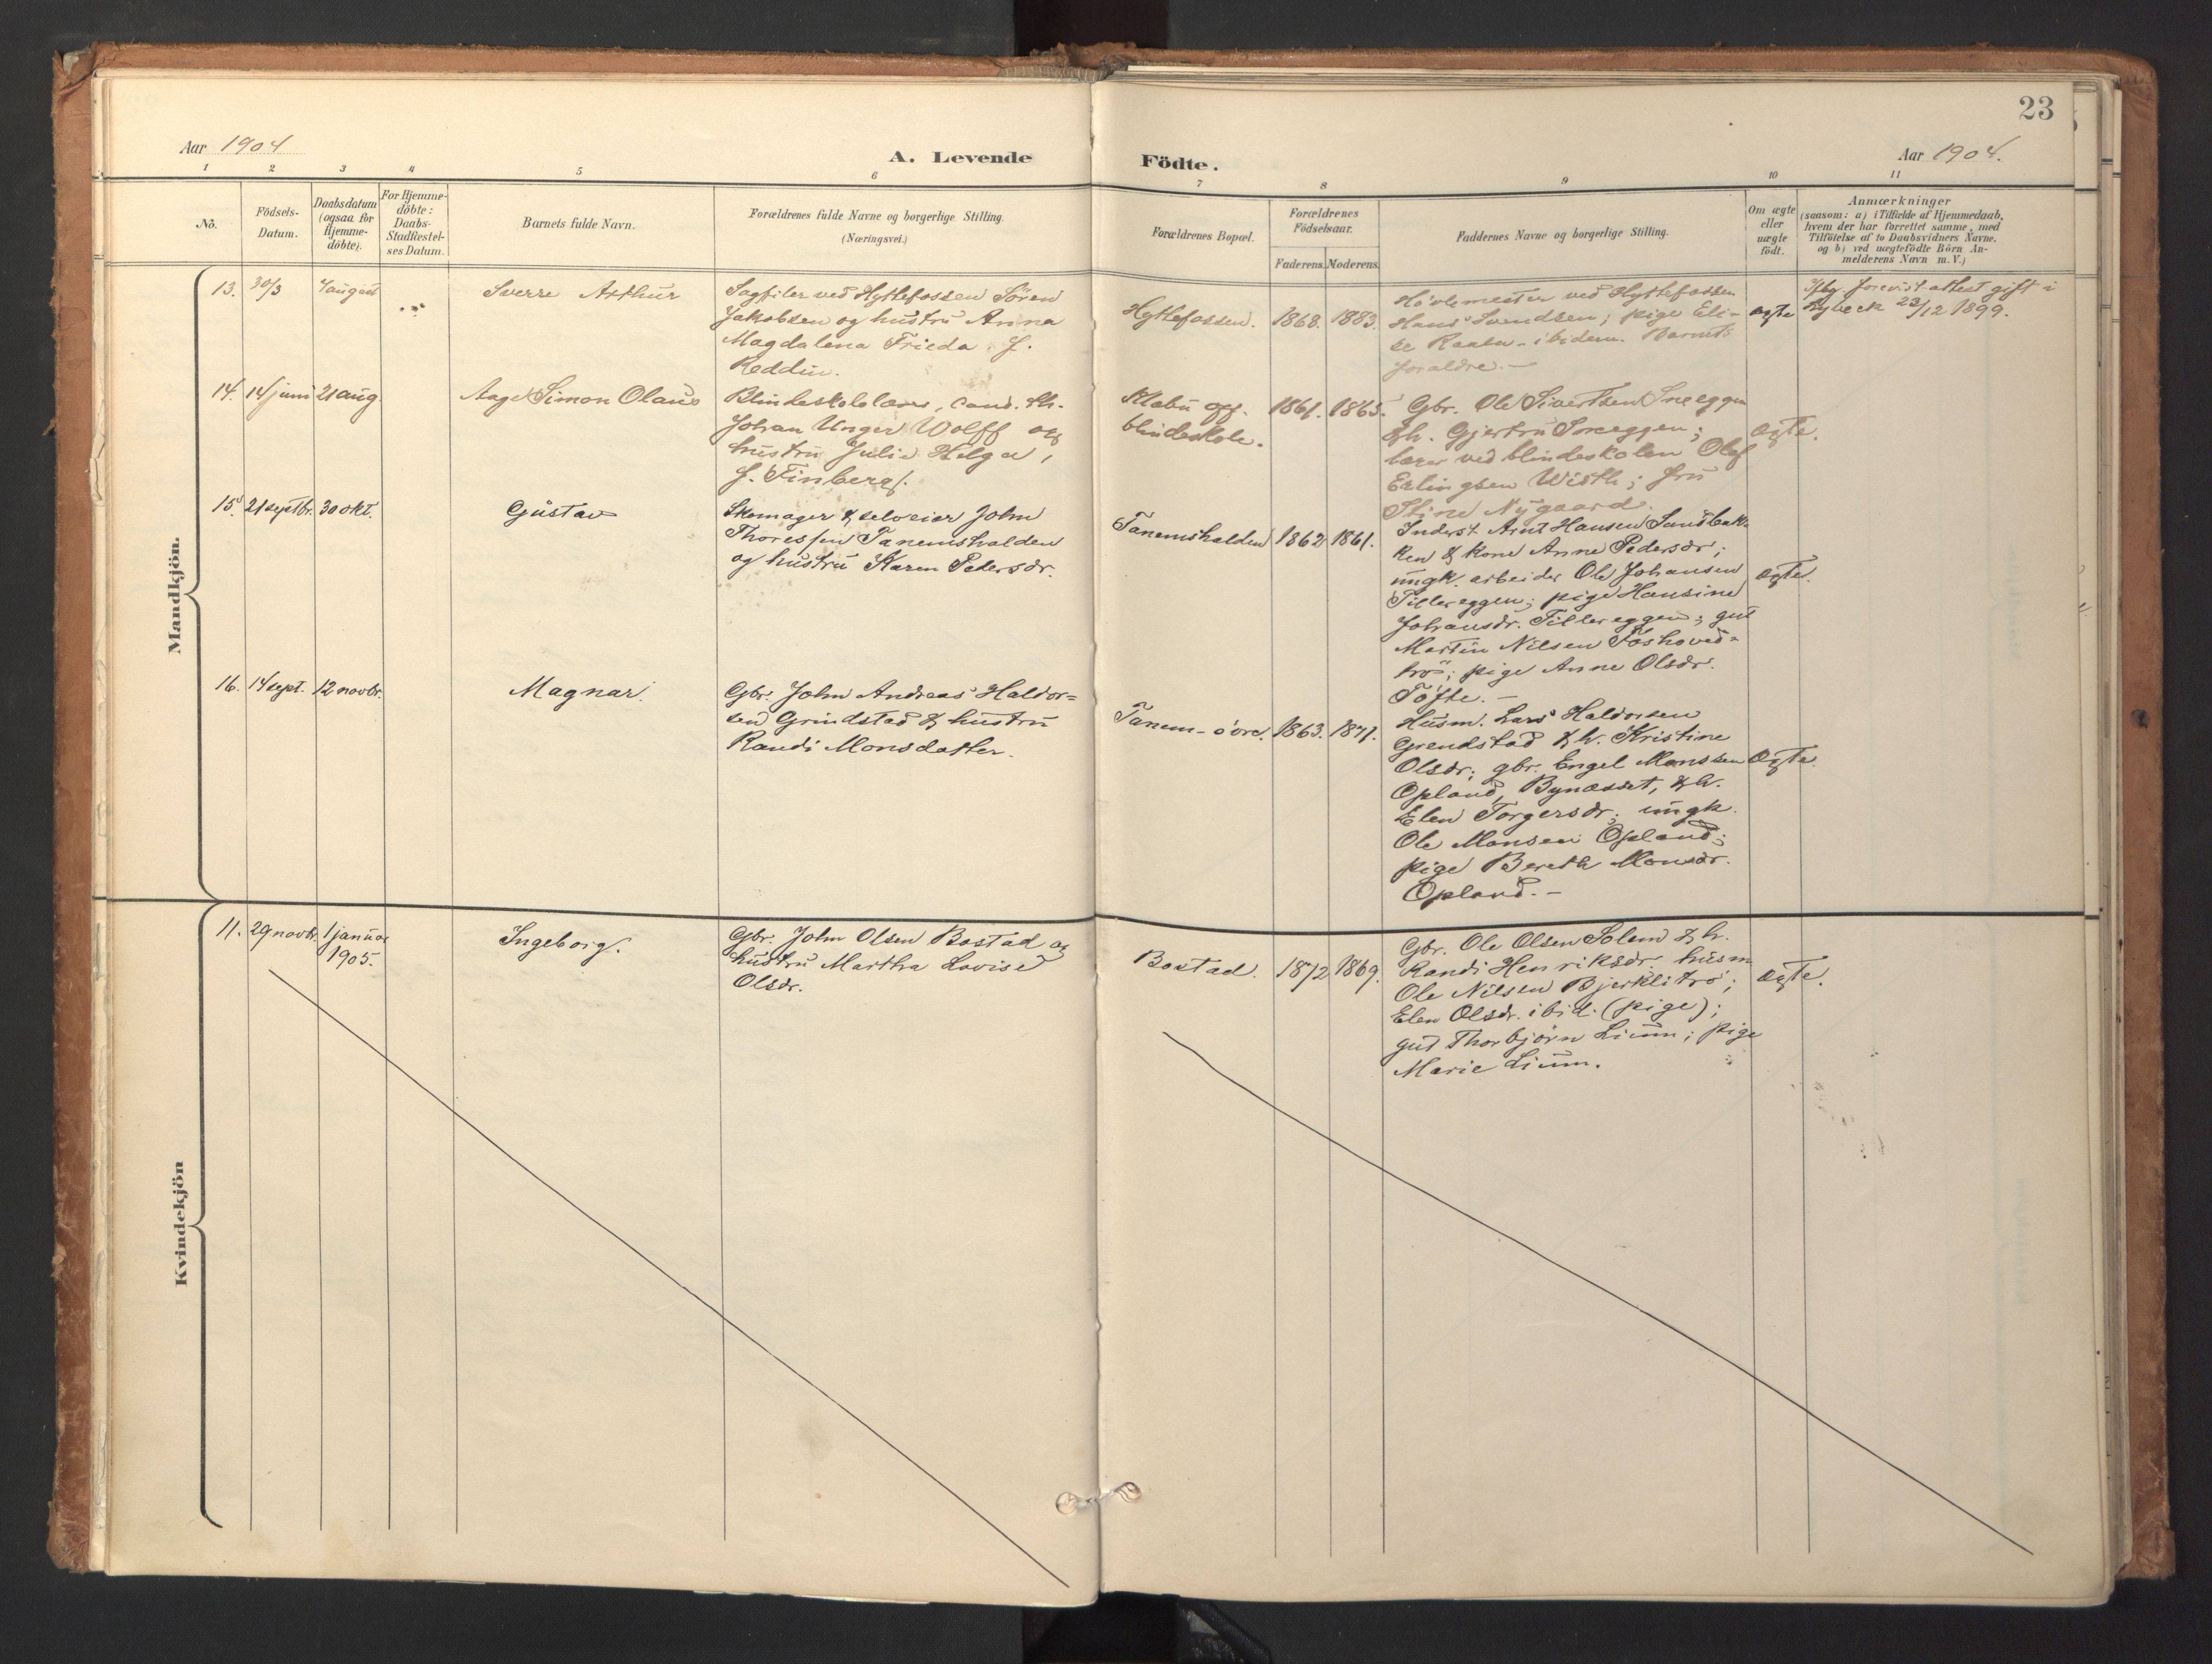 23
Aar 1904
A. Levende
Födte.
Aar 1904.
1 2 3 4 5 6 7 8 9 10 11
No.
Födsels-Datum.
Daabsdatum (ogsaa for Hjemme-döbte).
For Hjemme-döbte: Daabs-Stadfæstel-ses Datum.
Barnets fulde Navn.
Forældrenes fulde Navne og borgerlige Stilling.
(Næringsvei.)
Forældrenes Bopæl.
Forældrenes Födselsaar.
Faderens. Moderens.
Faddernes Navne og borgerlige Stilling.
Om ægte eller uægte födt.
Anmærkninger
(saasom: a) i Tilfælde af Hjemmedaab,
hvem der har forrettet samme, med
Tilföielse af to Daabsvidners Navne,
og b) ved uægtefödte Börn An-
melderens Navn m. V.)
Mandkjön.
13. 30/3 7 august
Sverre Arthur
Sagfiler ved Hyttefossen Sören
Jakobsen og hustru Anna
Magdalena Frieda f.
Reddin.
Hyttefossen. 1868. 1883.
Hövlemester ved Hyttefossen
Hans Svendsen; pige Eli-
se Raaen - ibidem. Barnets
foraldre. -
ægte
Iflg. forevist attest gift i
Lybeck 23/12 1899.
14. 14 juni 21 aug.
Aage Simon Olaus
Blindeskolelærer, cand. th.
Johan Unger Wolff og
hustru Julie Helga,
f. Finberg.
Klæbu off.
blindeskole.
1861. 1865.
Gbr. Ole Sivertsen Sneeggen
& h. Gjertru Sneeggen;
lærer ved blindeskolen Olaf
Erlingsen Wisth; fru
Stine Nygaard.
ægte.
15. 21 septbr. 30 okt.
Gustav
Skomager & selveier John
Thoressen Tanemshalden
og hustru Karen Pedersdr.
Tanemshalden 1862 1861.
Inderst Arnt Hansen Sandbak-
ken & kone Anne Pedersdr;
ungk. arbeider Ole Johansen
Tillereggen; pige Hansine
Johansdr. Tillereggen; gut
Martin Nilsen Foshoved-
trö; pige Anne Olsdr.
Töfte. -
ægte.
16. 14 sept. 12 novbr.
Magnar.
Gbr. John Andreas Haldor=
sen Grindstad & hustru
Randi Monsdatter.
Tanem-öire. 1863. 1871.
Husm. Lars Haldorsen
Grendstad & h. Kristine
Olsdr; gbr. Engel Monssen
Opland, Bynæsset, & h.
Elen Torgersdr; ungk.
Ole Monsen Opland;
pige Bereth Monsdr.
Opland. -
Ægte.
Kvindekjön
11. 29 novbr. 1 januar
1905.
Ingeborg.
Gbr. John Olsen Bostad og
hustru Martha Lovise
Olsdr.
Bostad. 1872 1869.
Gbr. Ole Olsen Solem & h.
Randi Henriksdr. husm
Ole Nilsen Bjerklitrö;
Elen Olsdr. ibid. (pige);
gut Thorbjörn Lium; pige
Marie Lium.
ægte.